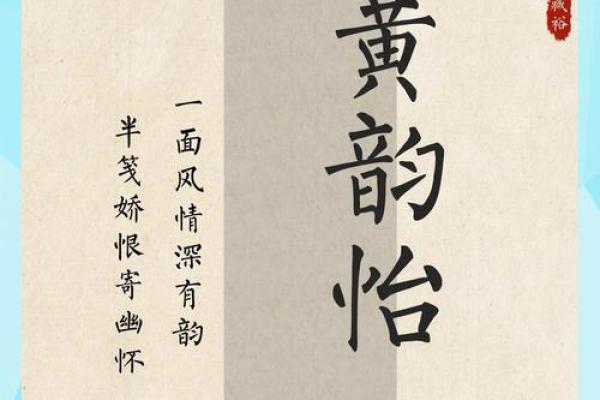 黄韵怡
一面风情深有韵
半笺娇恨寄幽怀